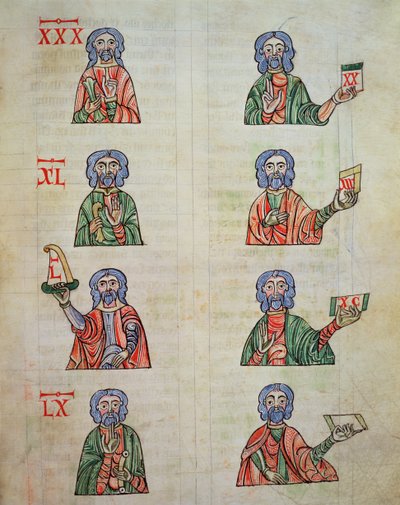 XXX
XL
L
LX
XX
XC